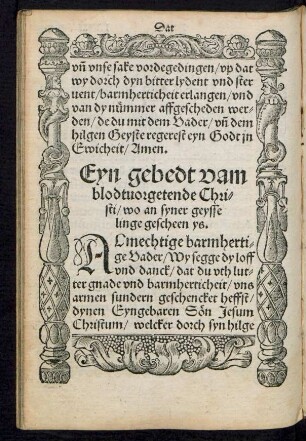 Dat
vn̄ vnse sake vordegedingen/vp dat
wy dorch dyn bitter lydent vnd ster
uent/barmherticheit erlangen/vnd
van dy nümmer affgescheden wer
den/de du mit dem Vader/vn̄ dem
hilgen Geyste regerest eyn Godt jn
Ewicheit/Amen.
Eyn gebedt vam
blodtuorgetende Chri-
sti/wo an syner geysse
linge gescheen ys.
ALmechtige barmherti-
ge Vader/Wy segge dy loff
vnd danck/dat du vth lut-
ter gnade vnd barmherticheit/vns
armen sundern geschencket heffst/
dynen Eyngebaren Sön Jesum
Christum/welcker dorch syn hilge